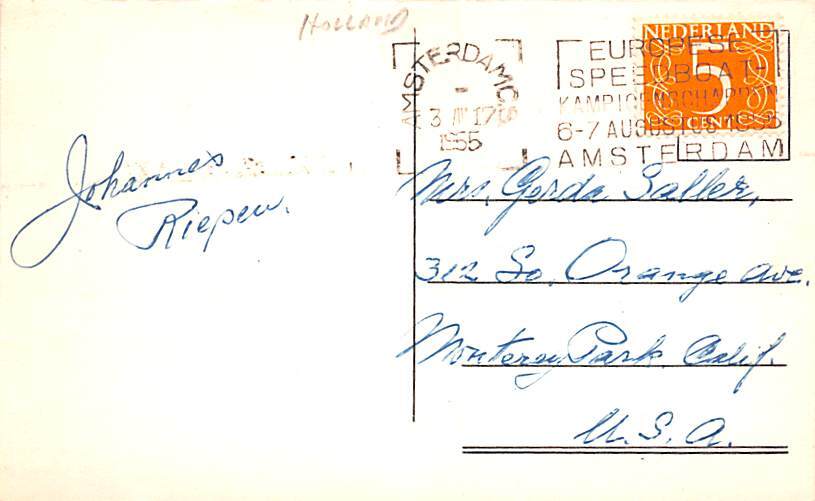 HOLLAND
AMSTERDAM C.S.
3 17
1955
EUROPESE
SPEEDBOAT-
KAMPIOENSCHAPPEN
6-7 AUGUSTUS 1955
AMSTERDAM
NEDERLAND
5
CENT
Johannes
Riepen.
Mrs. Gerda Saller,
312 So. Orange Ave.
Monterey Park Calif.
U.S.A.